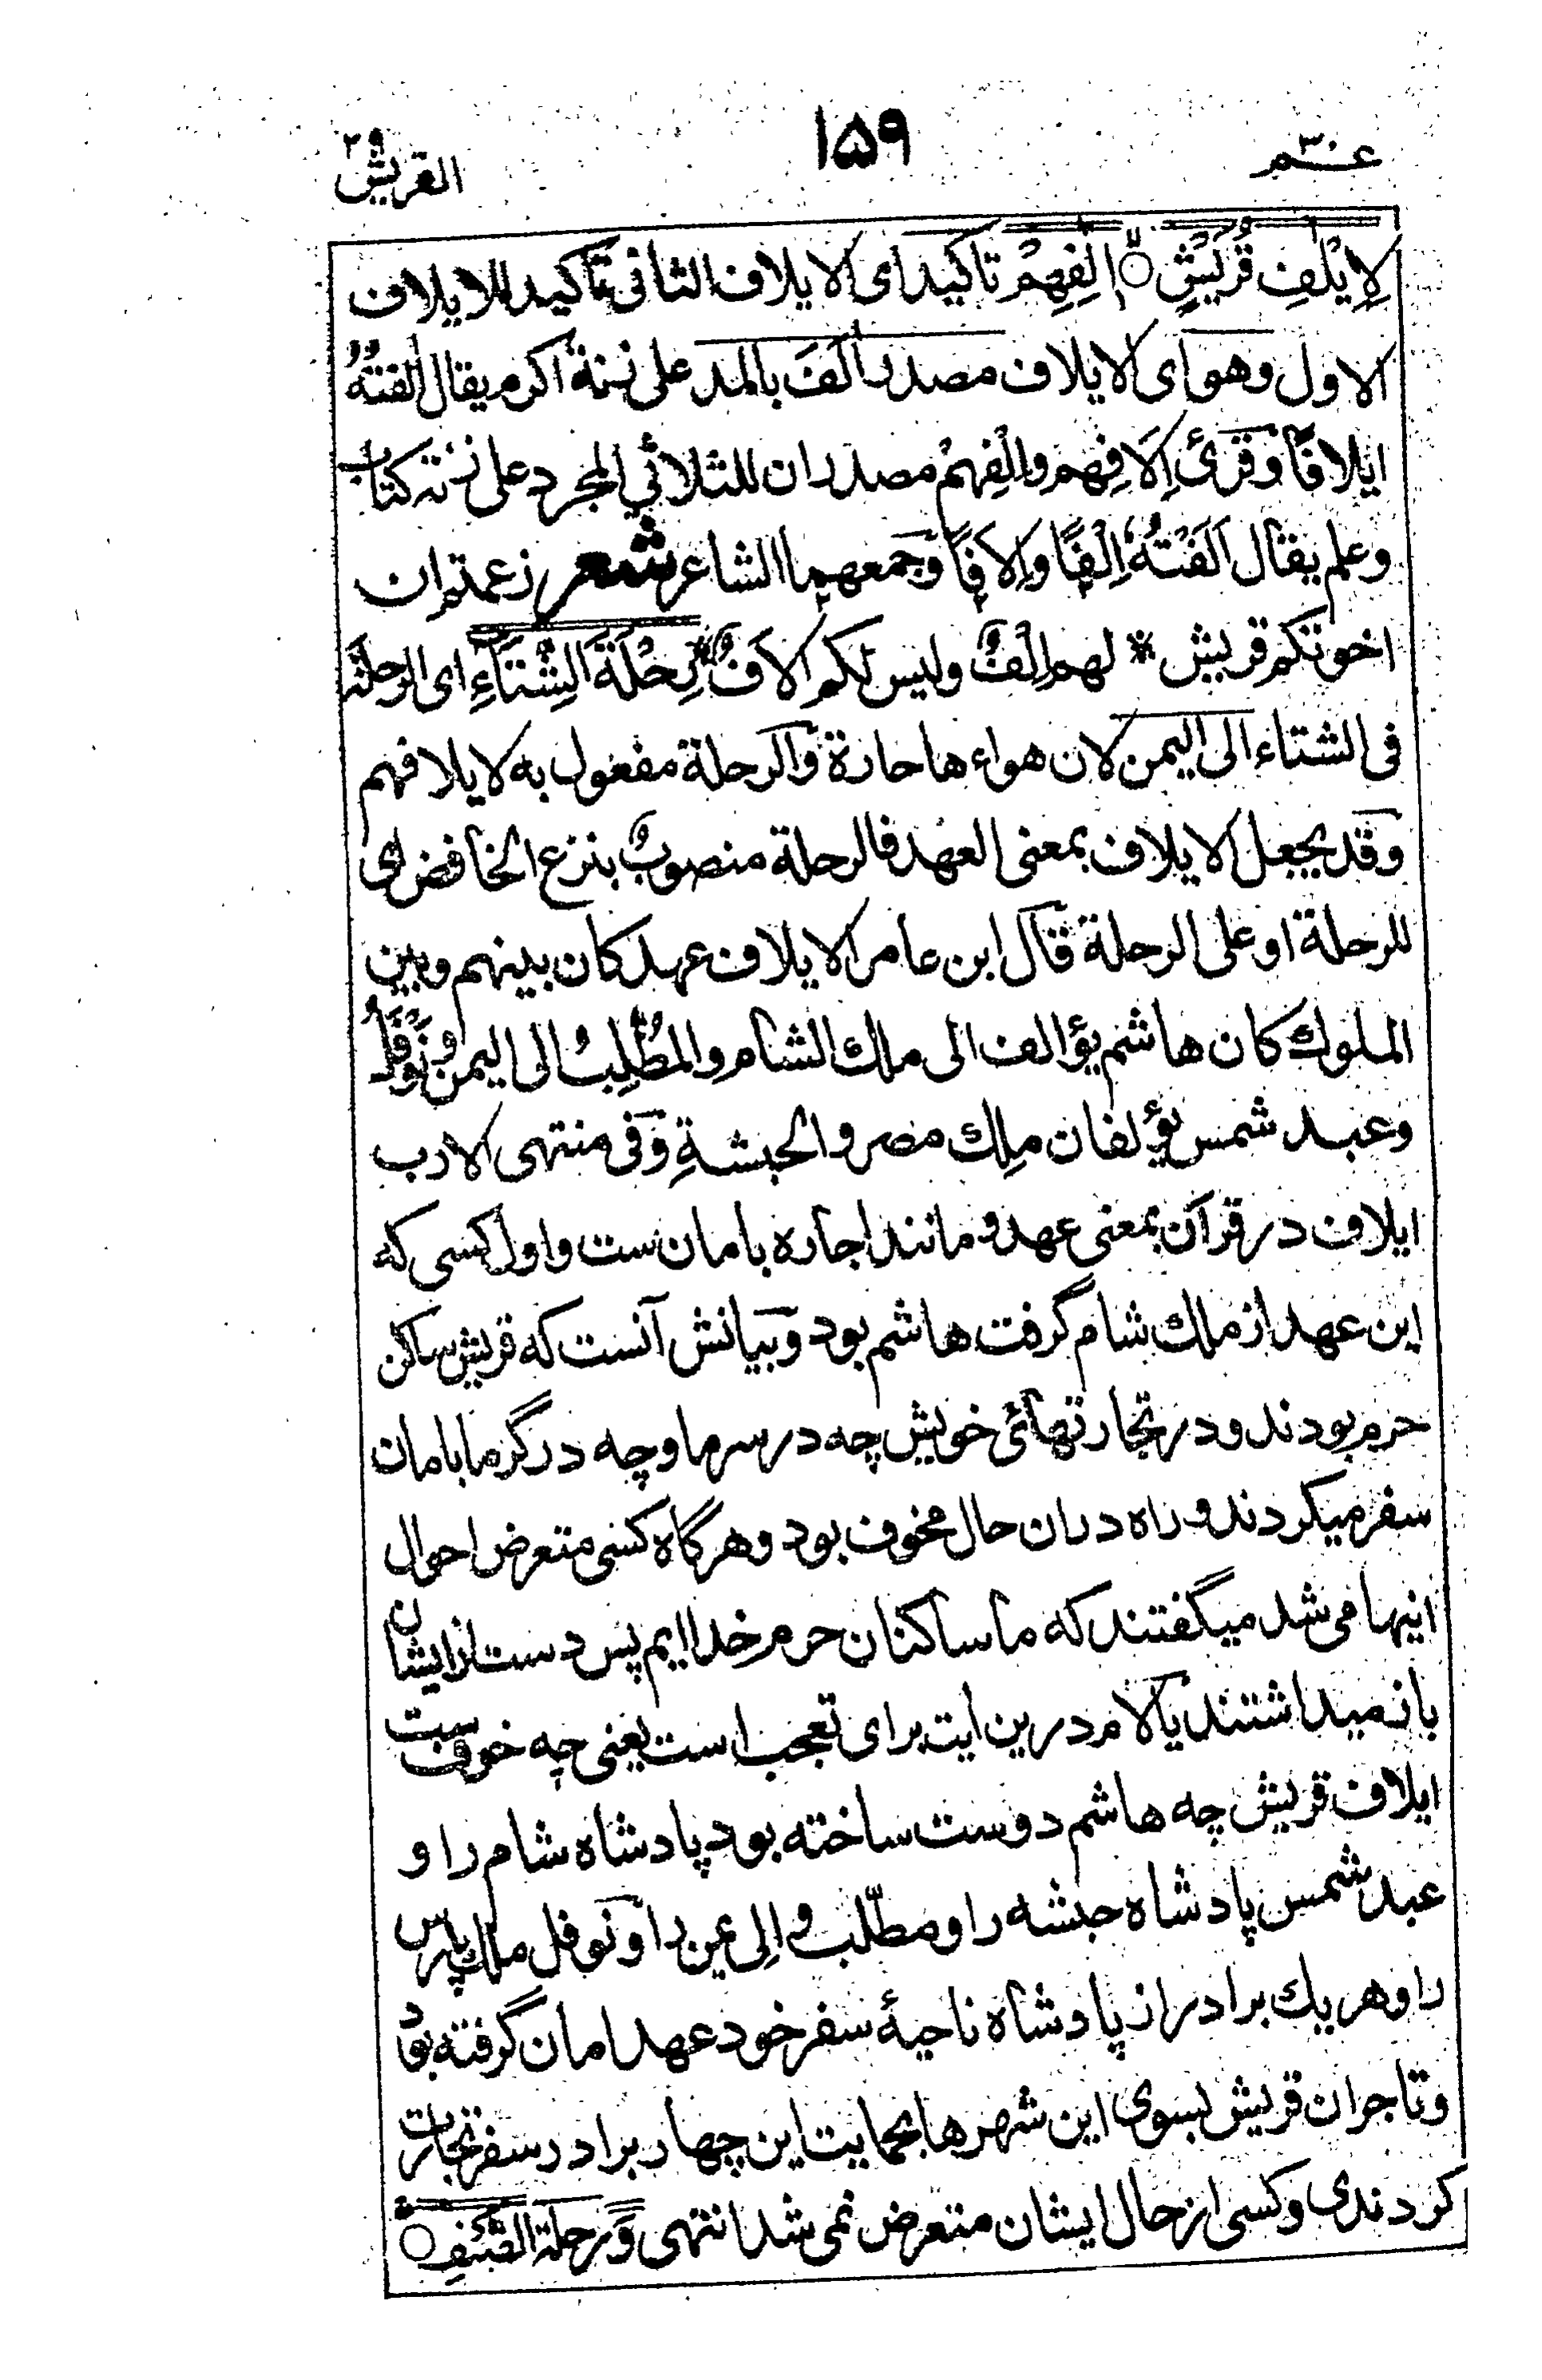 عـم ٣٠
١٥٩
القريش ٢٩
لِاِيْلٰفِ قُرَيْشٍ ۙ اٖلٰفِهِمْ تاكيد اى الايلاف الثانى تاكيد للايلاف
الاول وهو اى الايلاف مصدر اٰلَفَ بالمد على زنة اكرم يقال اٰلفتُهُ
ايلافًا وقرئ اِلَافِهم واِلْفِهِمْ مصدران للثلاثي المجرد على زنته كتاب
وعلم يقال اَلَفْتُهُ اِلْفًا واِلَافًا وجمعهما الشاعر شعر زعمتم ان
اخوتكم قريش * لهم اِلْفٌ وليس لكم الَافٌ * رِحْلَةَ الشِّتَآءِ اى الرحلة
فى الشتاء الى اليمن لان هواءها حارة والرحلة مفعول به لايلافهم
وقد يجعل الايلاف بمعنى العهد فالرحلة منصوبٌ بنزع الخافض اى
للرحلة او على الرحلة قال ابن عامر الايلاف عهد كان بينهم وبين
الملوك كان هاشم يؤالف الى ملك الشام والمُطَّلِبُ الى اليمن ونَوْفَلُ
وعبد شمس يؤلفان ملِك مصر والحبشةِ وفى منتهى الارب
ايلاف در قرآن بمعنى عهد و مانند اجاره بامان ست و اول كسى كه
اين عهد از ملك شام گرفت هاشم بود و بيانش آنست كه قريش ساكن
حرم بودند و در تجارتهائى خويش چه در سرما و چه در گرما بامان
سفر ميكردند و راه دران حال مخوف بود و هرگاه كسى متعرض احوال
اينها مى شد ميگفتند كه ما ساكنان حرم خداايم پس دست از ايشان
باز ميداشتند يا لام درين ايت براى تعجب است يعنى چه خوف ست
ايلاف قريش چه هاشم دوست ساخته بود پادشاه شام را و
عبد شمس پادشاه حبشه را و مطّلب والِى يمن را و نوفل ملك پارس
را و هر يك برادر از پادشاه ناحيۀ سفر خود عهد امان گرفته بود
و تاجران قريش بسوى اين شهرها بحمايت اين چهار برادر سفر تجارت
كردندى و كسى از حال ايشان متعرض نمى شد انتهى وَرِحلة الصَّيْفِ ○